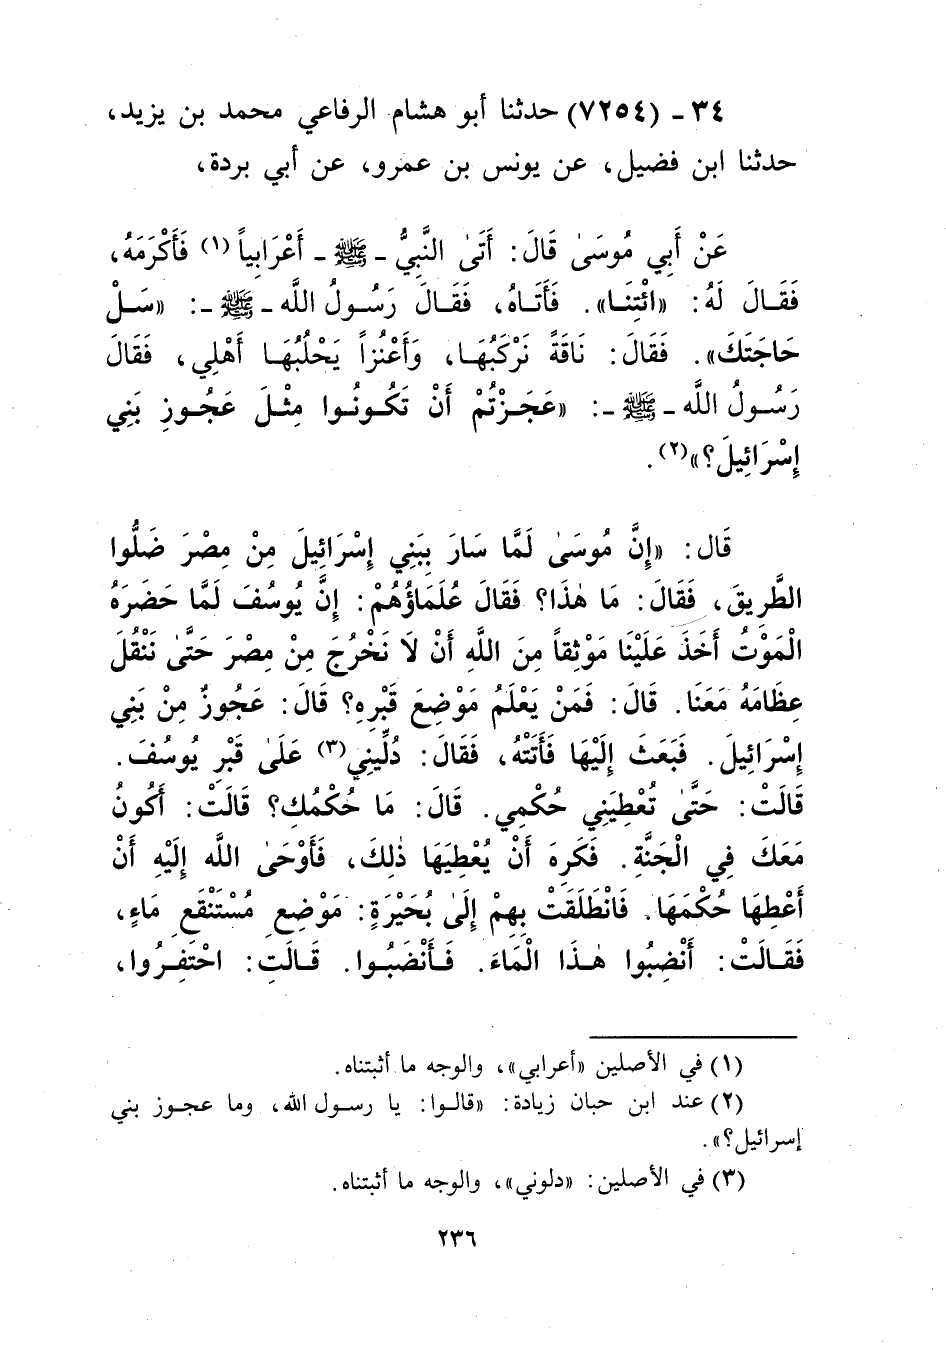 ٣٤ - (٧٢٥٤) حدثنا أبو هشام الرفاعي محمد بن يزيد،
حدثنا ابن فضيل، عن يونس بن عمرو، عن أبي بردة،
عَنْ أَبِي مُوسَىٰ قَالَ: أَتَىٰ النَّبِيُّ - ﷺ - أَعْرَابِياً (١) فَأَكْرَمَهُ،
فَقَالَ لَهُ: «ائْتِنَا». فَأَتَاهُ، فَقَالَ رَسُولُ اللَّه - ﷺ -: «سَلْ
حَاجَتَكَ». فَقَالَ: نَاقَةً نَرْكَبُهَا، وَأَعْنُزاً يَحْلُبُهَا أَهْلِي، فَقَالَ
رَسُولُ اللَّه - ﷺ -: «عَجَزْتُمْ أَنْ تَكُونُوا مِثْلَ عَجُوزِ بَنِي
إِسْرَائِيلَ؟» (٢).
قَال: «إِنَّ مُوسَىٰ لَمَّا سَارَ بِبَنِي إِسْرَائِيلَ مِنْ مِصْرَ ضَلُّوا
الطَّرِيقَ، فَقَالَ: مَا هٰذَا؟ فَقَالَ عُلَمَاؤُهُمْ: إِنَّ يُوسُفَ لَمَّا حَضَرَهُ
الْمَوْتُ أَخَذَ عَلَيْنَا مَوْثِقاً مِنَ اللَّهِ أَنْ لَا نَخْرُجَ مِنْ مِصْرَ حَتَّىٰ نَنْقُلَ
عِظَامَهُ مَعَنَا. قَالَ: فَمَنْ يَعْلَمُ مَوْضِعَ قَبْرِهِ؟ قَالَ: عَجُوزٌ مِنْ بَنِي
إِسْرَائِيلَ. فَبَعَثَ إِلَيْهَا فَأَتَتْهُ، فَقَالَ: دُلِّينِي (٣) عَلَىٰ قَبْرِ يُوسُفَ.
قَالَتْ: حَتَّىٰ تُعْطِيَنِي حُكْمِي. قَالَ: مَا حُكْمُكِ؟ قَالَتْ: أَكُونُ
مَعَكَ فِي الْجَنَّةِ. فَكَرِهَ أَنْ يُعْطِيَهَا ذٰلِكَ، فَأَوْحَىٰ اللَّه إِلَيْهِ أَنْ
أَعْطِهَا حُكْمَهَا. فَانْطَلَقَتْ بِهِمْ إِلَىٰ بُحَيْرَةٍ: مَوْضِعِ مُسْتَنْقَعِ مَاءٍ،
فَقَالَتْ: أَنْضِبُوا هٰذَا الْمَاءَ. فَأَنْضَبُوا. قَالَتِ: احْتَفِرُوا،
(١) في الأصلين «أعرابي»، والوجه ما أثبتناه.
(٢) عند ابن حبان زيادة: «قالوا: يا رسول الله، وما عجوز بني
إسرائيل؟».
(٣) في الأصلين: «دلوني»، والوجه ما أثبتناه.
٢٣٦